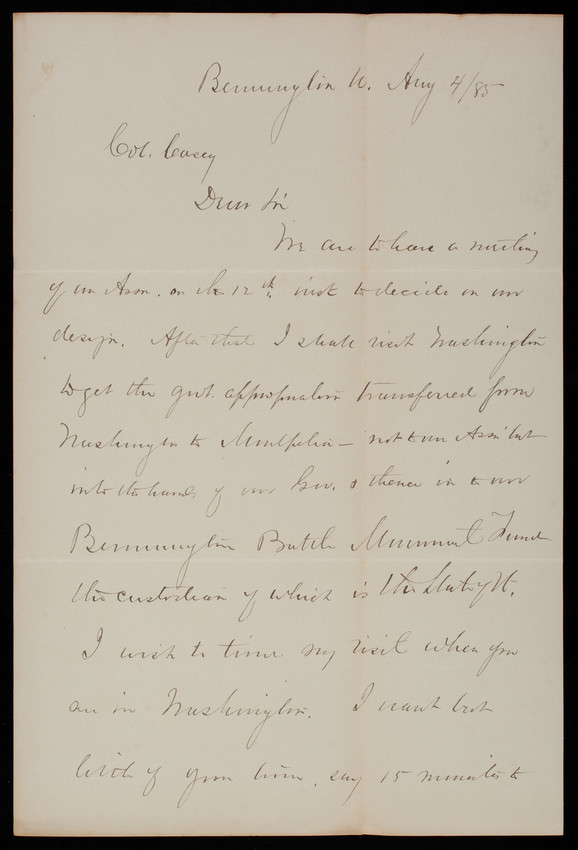 Bennington Vt. Aug 4/85
Col. Casey
Dear Sir
We are to have a meeting
of our Assn. on the 12th inst to decide on our
design. After that I shall visit Washington
to get the govt. appropriation transferred from
Washington to Montpelier – not to our Assn but
into the hands of our Gov. & thence in to our
Bennington Battle Monument Fund
the custodian of which is the State of Vt.
I wish to time my visit when you
are in Washington. I want but
little of your time, say 15 minutes to